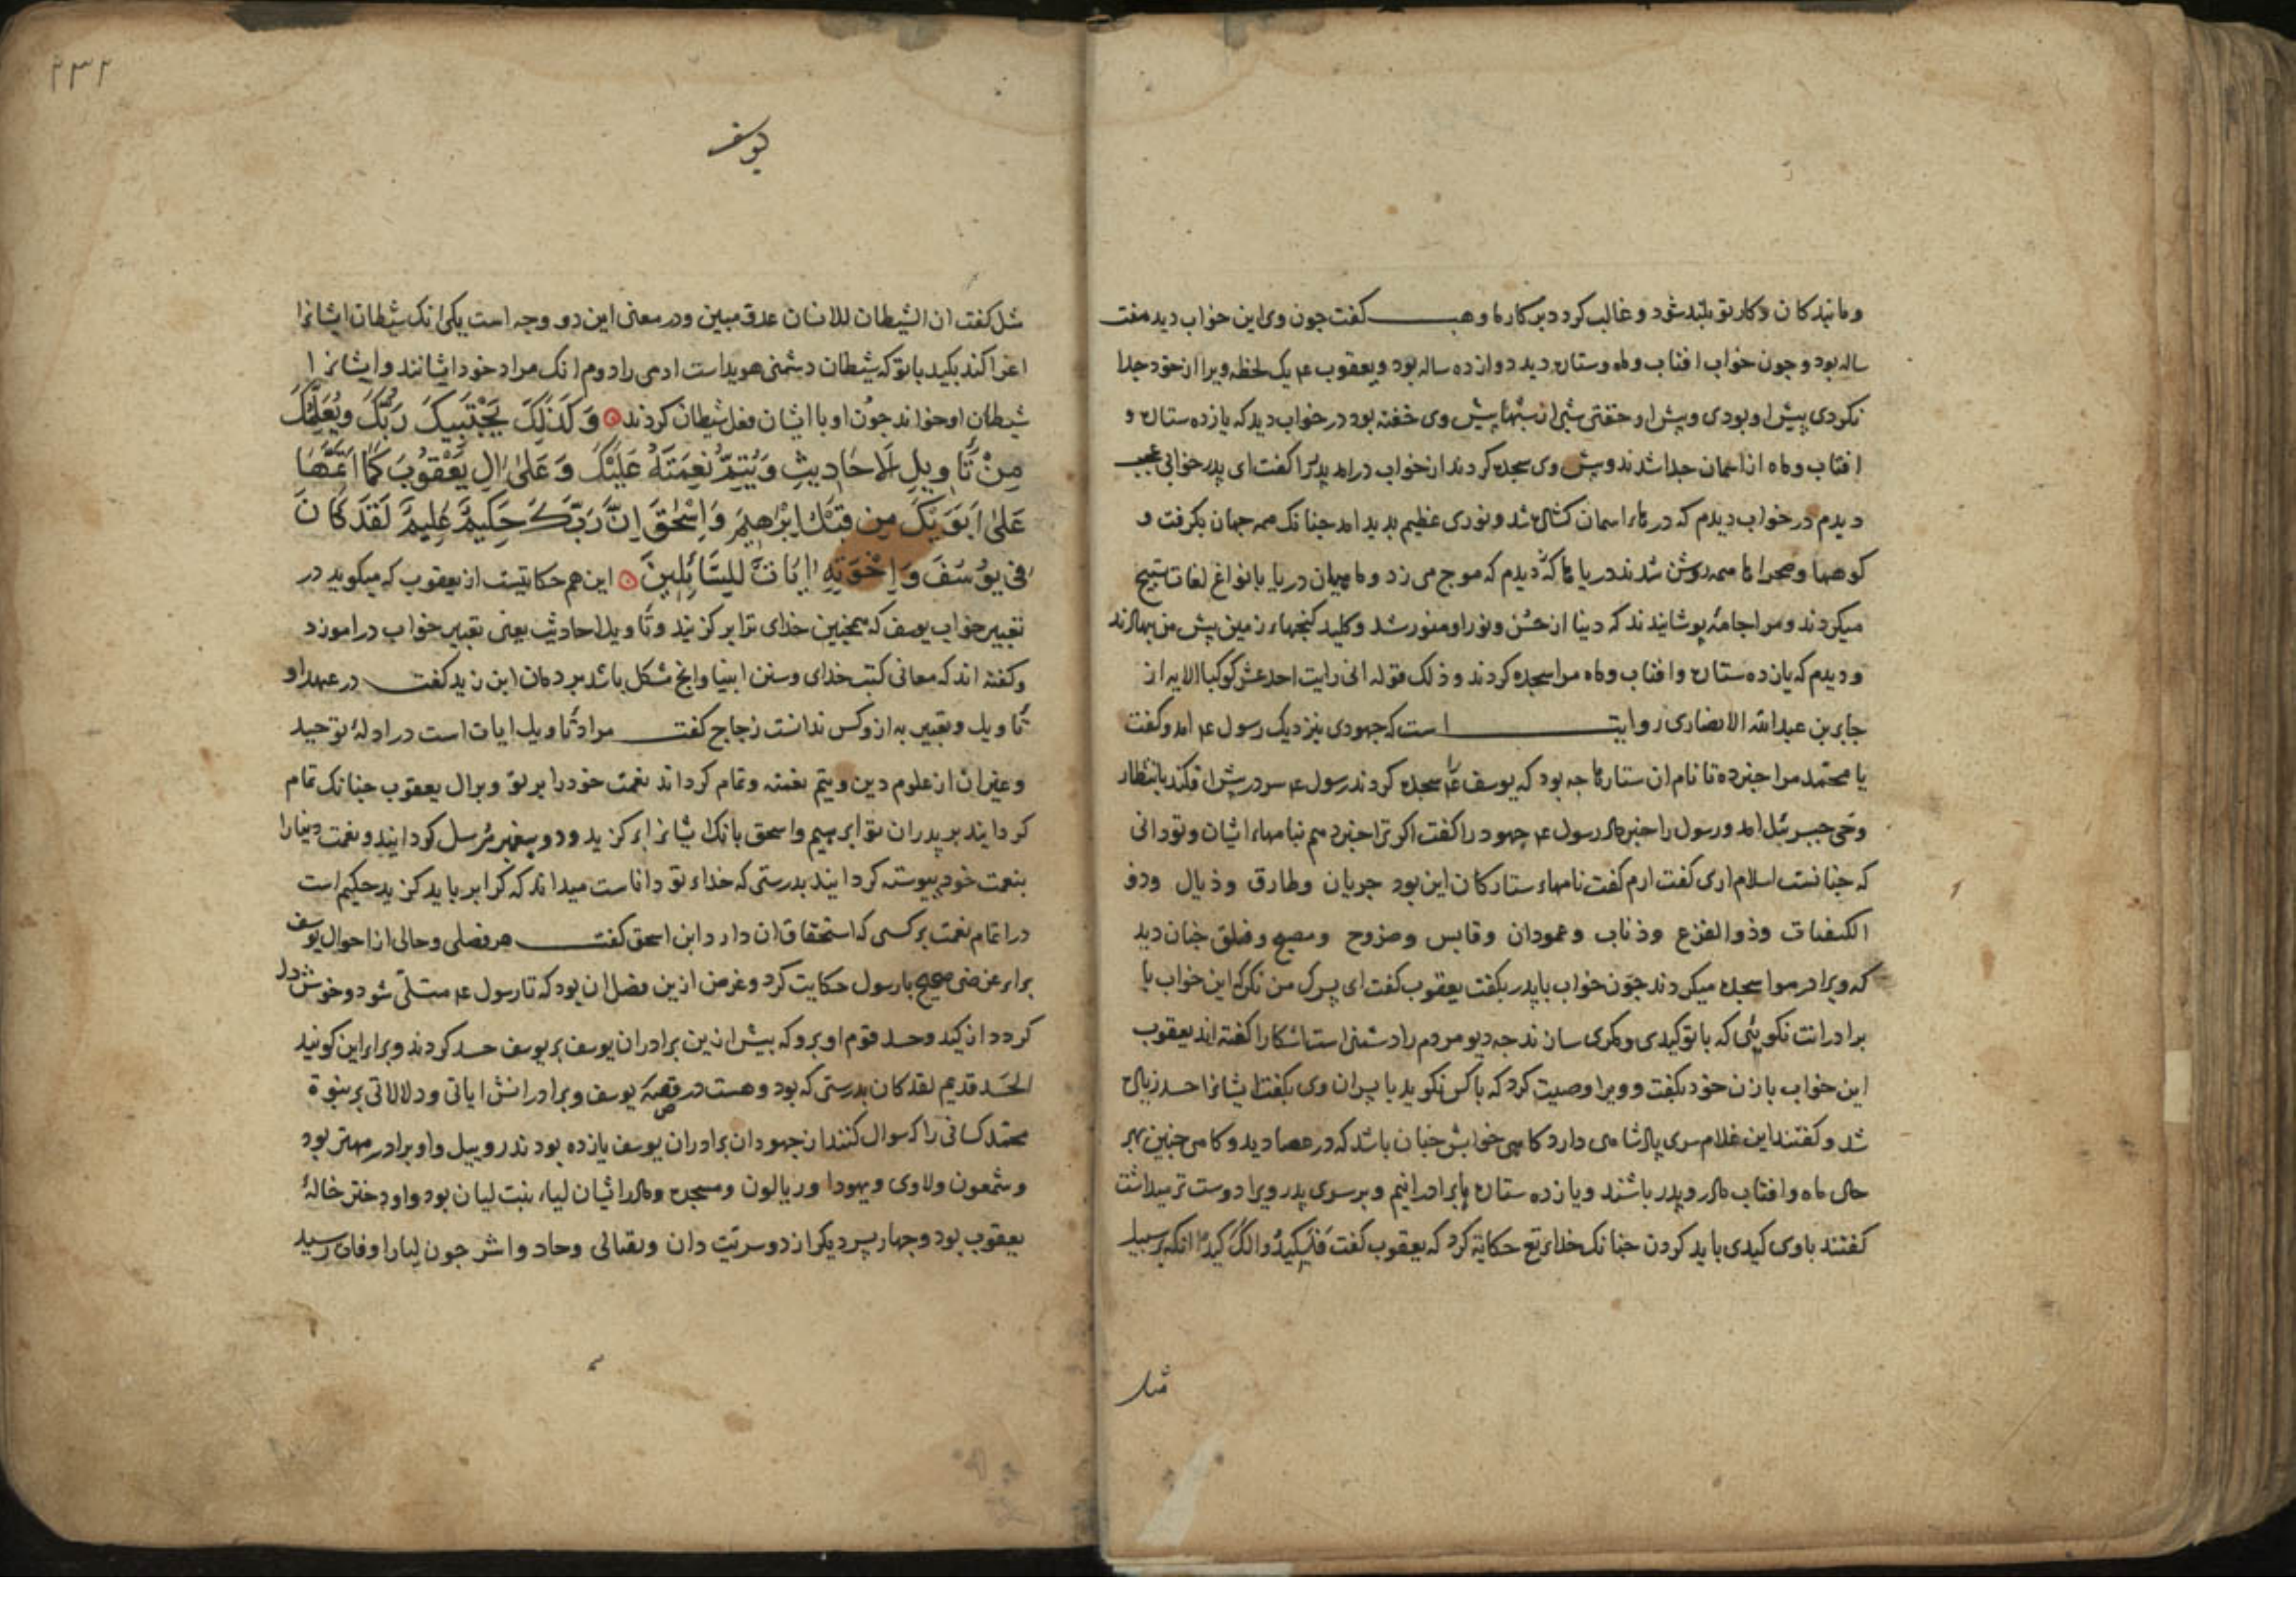 و مانیدکان وکار تو بلند شود و غالب کردد بر کارها وهب کفت جون وی این خواب دید هفت
ساله بود و جون خواب افتاب و ماه و ستاره دید دوازده ساله بود و یعقوب ع م یک لحظه ویرا از خود جدا
نکردی پیش او بودی و پیش او خفتی شبی از شبها پیش وی خفته بود در خواب دید که یازده ستاره و
افتاب و ماه از اسمان جدا شدند و پیش وی سجده کردند از خواب درامد پدر را کفت ای پدر خوابی عجب
دیدم در خواب دیدم که درهاء اسمان کشاده شد و نوری عظیم بدید امد جنانک همه جهان بکرفت و
کوهها و صحراها همه روشن شدند دریاها که دیدم که موج می زد و ماهیان دریا بانواع لغات تسبیح
میکردند و مرا جامهٔ پوشانیدند که دنیا از حسن و نور او منور شد و کلید کنجهاء زمین پیش من نهادند
و دیدم که یازده ستاره و افتاب و ماه مرا سجده کردند و ذلک قوله انی رایت احد عشر کوکبا الایه از
جابر بن عبدالله الانصاری روایت است که جهودی بنزدیک رسول ع م امد و کفت
یا محمد مرا خبر ده تا نام ان ستارها جه بود که یوسف را سجده کردند رسول ع م سر در پیش افکند بانتظار
وحی جبرئل امد و رسول را خبر داد رسول ع م جهود را کفت اکر ترا خبر دهم نبامهاء ایشان و تو دانی
که جنانست اسلام اری کفت ارم کفت نامهاء ستارکان این بود جربان و طارق و ذیال و ذو
الکتفات و ذوالفزع و ذناب و عمودان و قابس و ضروح و مصبح و فلق جنان دید
که ویرا در هوا سجده میکردند جون خواب با پدر بکفت یعقوب کفت ای پسرک من نکر که این خواب با
برادرانت نکویئی که با تو کیدی و مکری سازند جه دیو مردم را دشمنی است اشکارا کفته اند یعقوب
این خواب با زن خود بکفت و ویرا وصیت کرد که با کس نکوید با پسران وی بکفت ایشانرا حسد زیاده
شد و کفتند این غلام سری پادشاهی دارد کاهی خوابش جنان باشد که در عصا دید و کاهی جنین بهر
حال ماه و افتاب مادر و پدر باشند و یازده ستاره ما برادرانیم و بر سری پدر ویرا دوست تر میداشت
کفتند با وی کیدی باید کردن جنانک خدای تع حکایة کرد که یعقوب کفت فیکیدوا لک کیدا انکه بر سبیل
مثل
۲۳۲
یوسف
مثل کفت ان الشیطان للانسان عدو مبین و در معنی این دو وجه است یکی انک شیطان ایشانرا
اغرا کند بکید با تو که شیطان دشمنی هویداست ادمی را دوم انک مراد خود ایشانند و ایشانرا
شیطان او خواند جون او با ایشان فعل شیطان کردند وَ كَذٰلِكَ يَجْتَبِيكَ رَبُّكَ وَيُعَلِّمُكَ
مِنْ تَأْوِيلِ الْاَحَادِيثِ وَيُتِمُّ نِعْمَتَهُ عَلَيْكَ وَ عَلٰى اٰلِ يَعْقُوبَ كَمَا اَتَمَّهَا
عَلٰى اَبَوَيْكَ مِن قَبْلُ اِبْرٰهِيمَ وَ اِسْحٰقَ اِنَّ رَبَّكَ حَكِيمٌ عَلِيمٌ لَقَدْ كَانَ
فِى يُوسُفَ وَ اِخْوَتِهِ اٰيَاتٌ لِلسَّائِلِينَ این هم حکایتیست از یعقوب که میکوید در
تعبیر خواب یوسف که همجنین خدای ترا بر کزیند و تاویل احادیث یعنی تعبیر خواب دراموزد
و کفته اند که معانی کتب خدای و سنن انبیا وانج مشکل باشد بر مردمان ابن زید کفت در عهد او
تاویل و تعبیر به از و کس ندانست زجاج کفت مراد تاویل ایات است در ادلهٔ توحید
و غیر ان از علوم دین و یتم نعمته و تمام کرداند نعمت خود را بر تو و برال یعقوب جنانک تمام
کردانید بر پدران تو ابرهیم و اسحق بانک ایشانرا بر کزید و دو پیغمبر مرسل کردانید و نعمت دنیا را
بنعمت خود پیوسته کردانید بدرستی که خداء تو داناست میداند که کرا بر باید کزید حکیم است
در اتمام نعمت بر کسی که استحقاق ان دارد ابن اسحق کفت هر فصلی و حالی از احوال یوسف
براء غرضی صحیح با رسول حکایت کرد و غرض ازین فصل ان بود که تا رسول ع م متسلی شود و خوش دل
کردد از کید و حسد قوم او برو که پیش ازین برادران یوسف بر یوسف حسد کردند و براء این کویند
الحسد قدیم لقد کان بدرستی که بود و هست در قصهٔ یوسف و برادرانش ایاتی و دلالاتی بر نبوة
محمد کسانی را که سوال کنند از جهودان برادران یوسف یازده بودند روبیل و او برادر مهتر بود
و شمعون و لاوی و یهودا و ریالون و مسجر و مادر ایشان لیاء بنت لیان بود و او دختر خالهٔ
یعقوب بود و جهار پسر دیکر از دو سریت دان و نفتالی و حاد و اشر جون لیا را وفات رسید